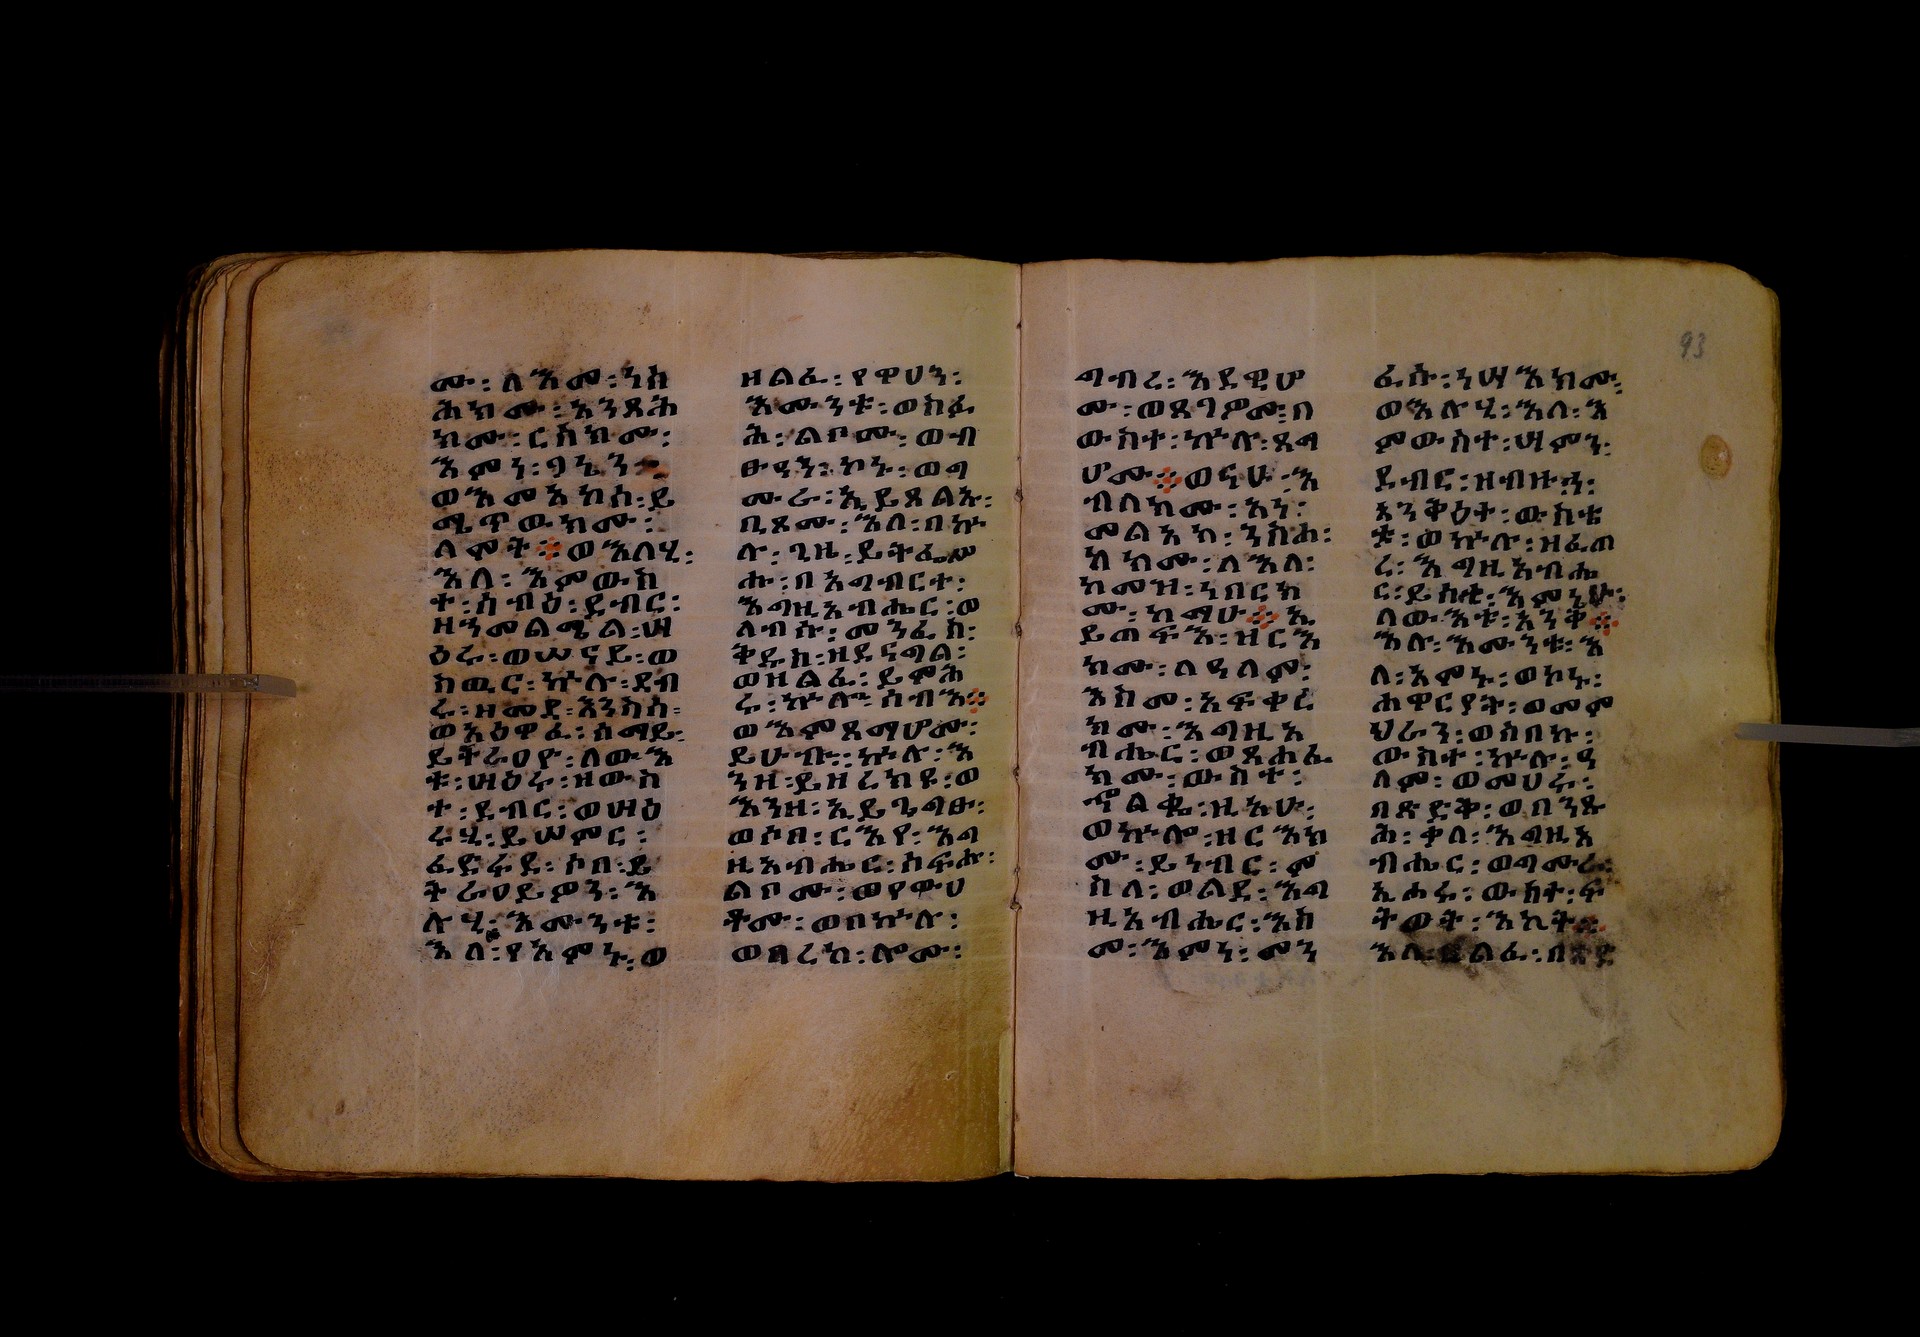 ሙ፡ለእመ፡ነስ
ሕክሙ፡አንጻሕ
ክሙ፡ርእስክሙ፡
እምነ፡ዓኔን፨
ወእመአክስ፡ይ
ሜጥወክሙ፡
ለሞት፨ወእለሂ፡
እለ፡እምውስ
ተ፡ሰብዕ፡ደብር፡
ዘንመልሜል፡ሣ
ዕሩ፡ወሠናይ፡ወ
ክዉር፡ኵሉ፡ደብ
ረ፡ዘመደ፡እንስሳ፡
ወአዕዋፈ፡ሰማይ፡
ይትራዐዩ፡ለውእ
ቱ፡ሣዕሩ፡ዘውስ
ተ፡ደብር፡ወሣዕ
ሩሂ፡ይሠምር፡
ፈድፋደ፡ሶበ፡ይ
ትራዐይዎን፡እ
ሉሂ፡እሙንቱ፡
እለ፡የአምኑ፡ወ
ዘልፈ፡የዋሀን፡
እሙንቱ፡ወስፉ
ሕ፡ልቦሙ፡ወብ
ፁዓን፡ኮኑ፡ወግ
ሙራ፡ኢይጸልኡ፡
ቢጾሙ፡እለ፡በኵ
ሉ፡ጊዜ፡ይትፌሥ
ሑ፡በአግብርተ፡
እግዚአብሔር፡ወ
ለብሱ፡መንፈስ፡
ቅዱስ፡ዘደናግል፡
ወዘልፈ፡ይምሕ
ሩ፡ኵሎ፡ሰብእ፨
ወእምጻማሆሙ፡
ይሁቡ፡ኵሉ፡እ
ንዘ፡ይዘረክዩ፡ወ
እንዘ፡ኢይኔግፁ፡
ወሶበ፡ርእየ፡እግ
ዚአብሔር፡ስፍሐ፡
ልቦሙ፡ወየውሀ
ቶሙ፡ወበኵሉ፡
ወባረከ፡ሎሙ፡
ግብረ፡እደዊሆ
ሙ፡ወጸግዎሙ፡በ
ውስተ፡ኵሉ፡ጻማ
ሆሙ፨ወናሁ፡እ
ብለክሙ፡አነ፡
መልአከ፡ንስሐ፡
ለክሙ፡ለእለ፡
ከመዝ፡ነበርክ
ሙ፡ከማሁ፨ኢ
ይጠፍእ፡ዝርእ
ክሙ፡ለዓለም፡
እስመ፡አፍቀረ
ክሙ፡እግዚአ
ብሔር፡ወጸሐፈ
ክሙ፡ውስተ፡
ኆልቈ፡ዚአሁ፡
ወኵሎ፡ዘርእክ
ሙ፡ይነብር፡ም
ስለ፡ወልደ፡እግ
ዚአብሔር፡እስ
መ፡እምነ፡መን
ፈሱ፡ነሣእክሙ፡
ወእሉሂ፡እለ፡እ
ምውስተ፡ሣምን፡
ደብር፡ዘብዙኅ፡
አንቅዕተ፡ውስቴ
ቱ፡ወኵሉ፡ዘፈጠ
ረ፡እግዚአብሔ
ር፡ይሰቲ፡እምኔሁ፡
ለውእቱ፡አንቅዕ፨
እሉ፡እሙንቱ፡እ
ለ፡አምኑ፡ወኮኑ፡
ሐዋርያት፡ወመም
ህራን፡ወሰበኩ፡
ውስተ፡ኵሉ፡ዓ
ለም፡ወመሀሩ፡
በጽድቅ፡ወበንጹ
ሕ፡ቃለ፡እግዚአ
ብሔር፡ወግሙራ፡
ኢሐሩ፡ውስተ፡ፍ
ትወት፡እኪት፨
እለ፡ዘልፈ፡በጽድ
93